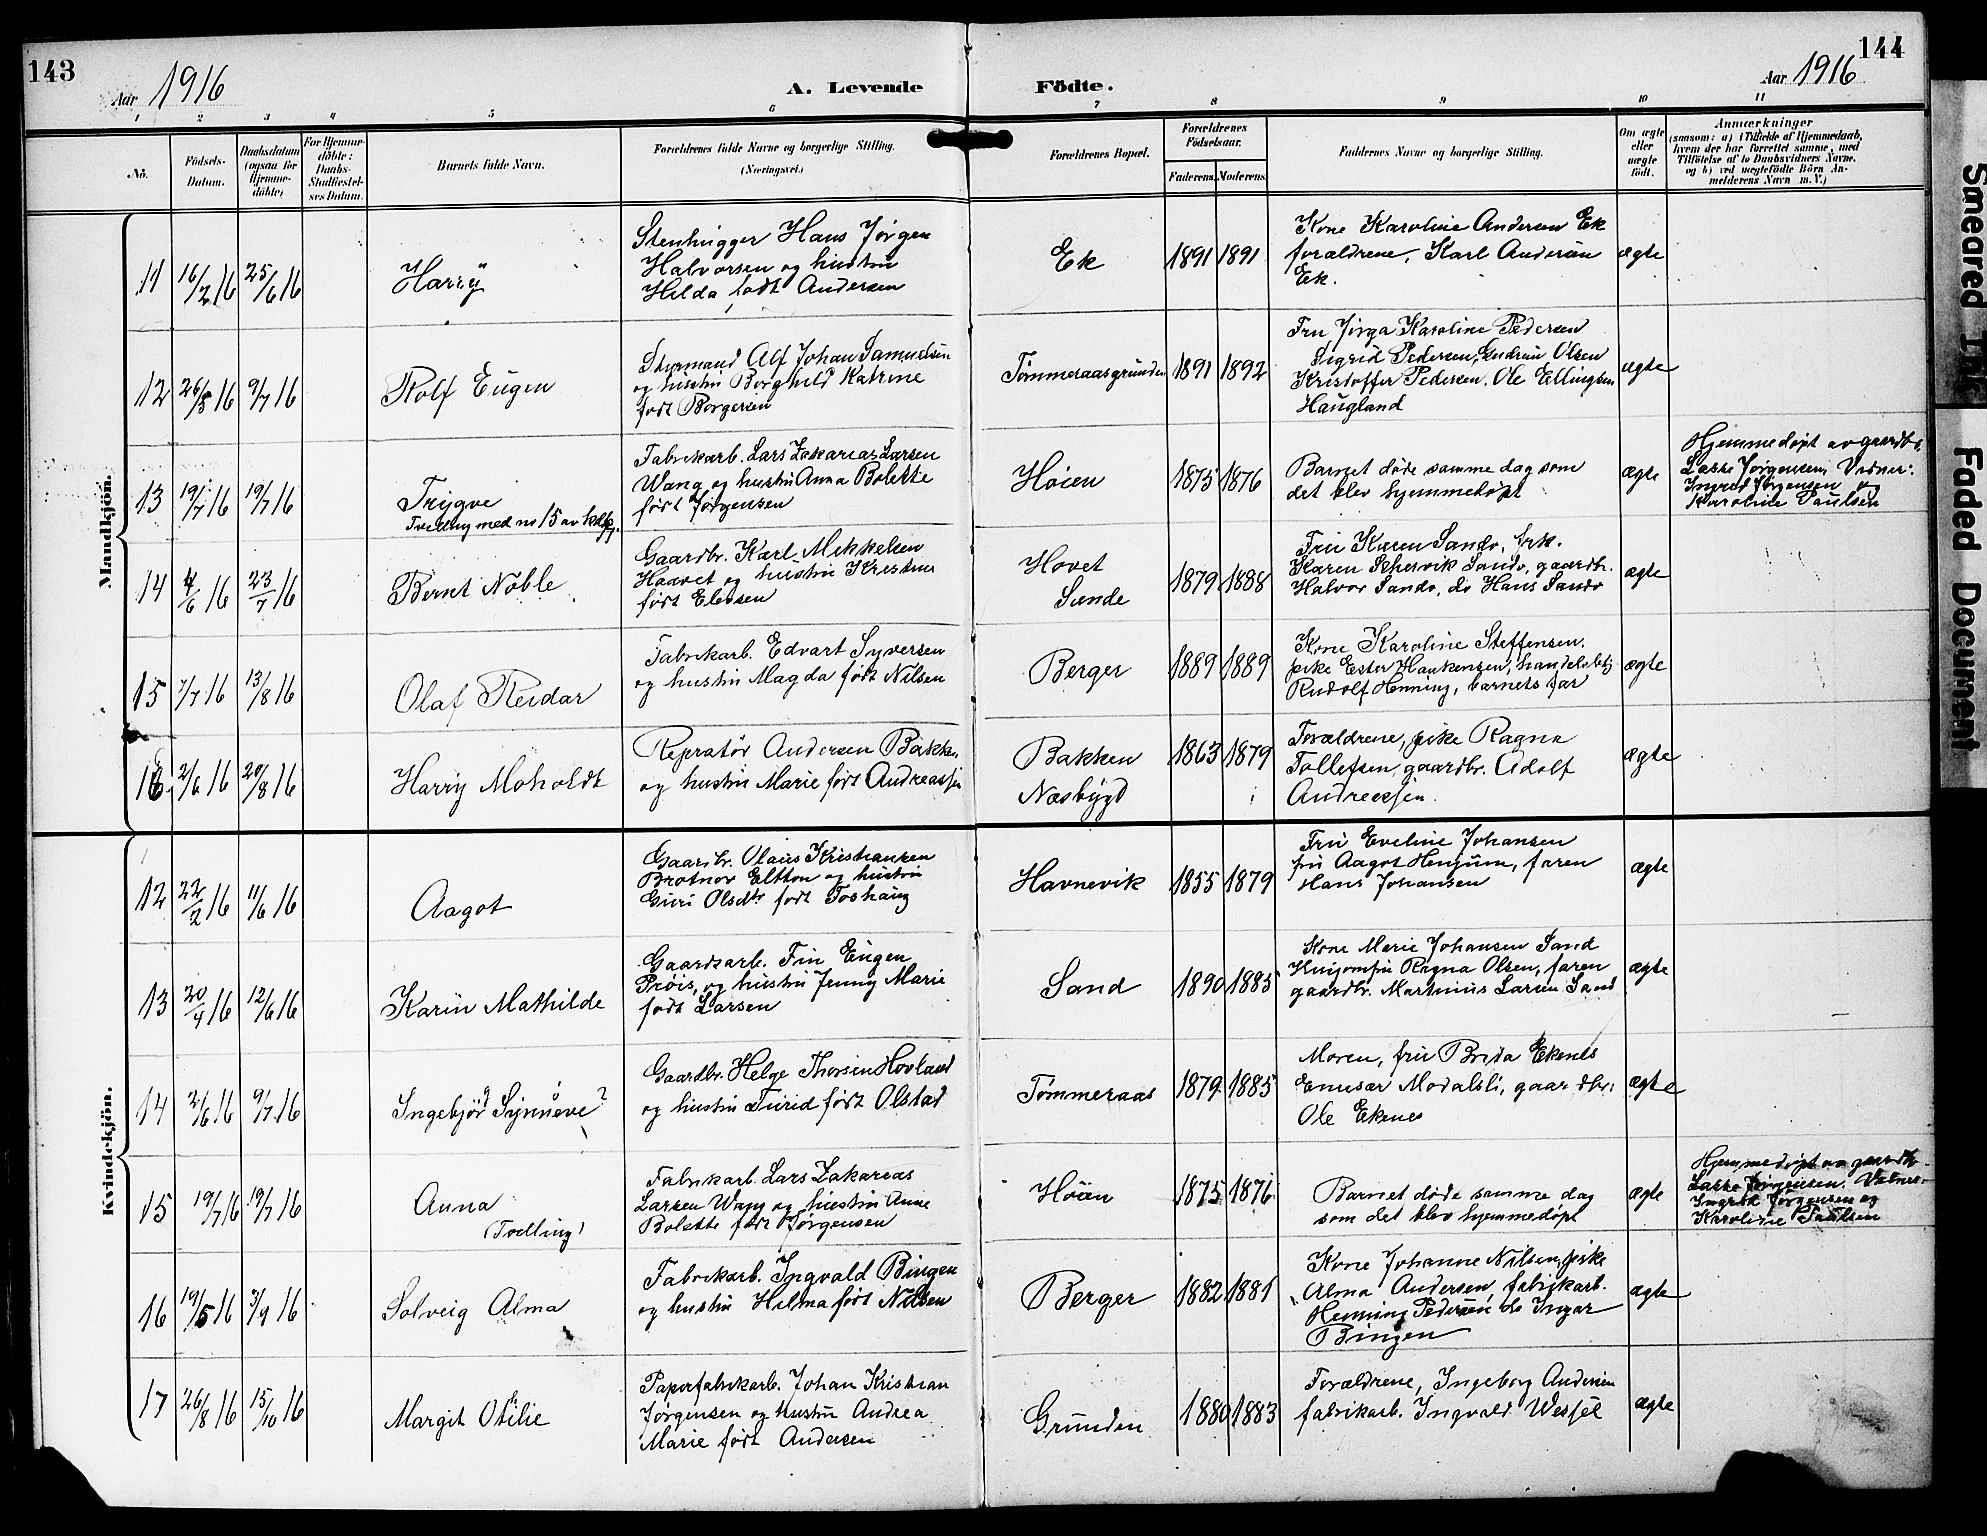 143
Aar 1916
A. Levende
Födte.
Aar 1916
144
1 2 3 4 5 6 7 8 9 10 11
No.
Födsels-Datum.
Daabsdatum (ogsaa for Hjemme-döbte)
For Hjemme-döbte: Daabs-Stadfæstel-ses Datum.
Barnets fulde Navn.
Forældrenes fulde Navne og borgerlige Stilling.
(Næringsvei.)
Forældrenes Bopæl.
Forældrenes Födselsaar.
Faderens. Moderens.
Faddernes Navne og borgerlige Stilling.
Om ægte eller uægte födt.
Anmærkninger
(saasom: a) i Tilfælde af Hjemmedaab,
hvem der har forrettet samme, med
Tilföielse af to Daabsvidners Navne,
og b) ved uægtefödte Börn An-
melderens Navn m. V.)
Mandkjön.
11 16/2 16 25/6 16 Harry
Stenhugger Hans Jørgen
Halvorsen og hustru
Hilda født Andersen
Ek 1891 1891
Kone Karoline Andersen Ek
forældrene, Karl Andersen
Ek.
ægte
12 26/5 16 9/7 16 Rolf Eugen
Styrmand Alf Johan Samuelsen
og hustru Borghild Katrine
født Borgersen
Tømmeraasgrunden 1891 1892
Fru Jørga Karoline Pedersen
Sigrid Pedersen, Gudrun Olsen
Kristoffer Pedersen, Ole Ellingsen
Haugland
ægte
13 19/7 16 19/7 16 Trygve
Tvelling med no 15 av kvkj.
Fabrikarb. Lars Zakarias Larsen
Wang og hustru Anna Bolette
født Jørgensen
Høien 1875 1876
Barnet døde samme dag som
det blev hjemmedøpt
ægte
Hjemmedøpt av gaardbr.
Lasse Jørgensen, Vidner:
Ingrid Jørgensen og
Karoline Paulsen
14 4/6 16 23/7 16 Bernt Nøble
Gaardbr. Karl Mikkelsen
Haavet og hustru Kristine
født Ellefsen
Hovet
Sande
1879 1888
Fru Karen Sando, frk.
Karen Schervik Sando, gaardbr.
Halvor Sando, do Hans Sando
ægte
15 7/7 16 13/8 16 Olaf Reidar
Fabrikarb. Edvart Syversen
og hustru Magda født Nilsen
Berger 1889 1889
Kone Karoline Steffensen,
pike Ester Haakensen, handelsbetj.
Rudolf Henning, barnets far
ægte
16 2/6 16 20/8 16 Harry Moholdt
Repratør Andersen Bakke
og hustru Marie født Andreassen
Bakken
Næsbygd
1863 1879
Forældrene, pike Ragna
Tollefsen, gaardbr. Adolf
Andreassen.
ægte
Kvindekjön.
12 22/2 16 11/6 16 Aagot
Gaardbr. Olaus Kristiansen
Brotnov Eltton og hustru
Guri Olsdtr født Toshaug
Havnevik 1855 1879
Fru Eveline Johansen
fru Aagot Henjum, faren
Hans Johansen
ægte
13 20/4 16 12/6 16 Karin Mathilde
Gaardsarb. Fin Eugen
Prøis, og hustru Jenny Marie
født Larsen
Sand 1890 1885
Kone Marie Johansen Sand
Husjomfru Ragna Olsen, faren
gaardbr. Martinius Larsen Sand
ægte
14 2/6 16 9/7 16 Ingebjørd Synnøve
Gaardbr. Helge Thorsen Hovland
og hustru Turid født Olstad
Tømmeraas 1879 1885
Moren, fru Brida Ekenes
Modalsli, gaardbr.
Ole Ekenes
ægte
15 19/7 16 19/7 16 Anna
(Tvelling)
Fabrikarb. Lars Zakarias
Larsen Wang og hustru Anna
Bolette født Jørgensen
Høien 1875 1876
Barnet døde samme dag
som det blev hjemmedøpt
ægte
Hjemmedøpt av gaardbr.
Lasse Jørgensen. Vidner:
Ingrid Jørgensen og
Karoline Paulsen
16 19/5 16 3/9 16 Solveig Alma
Fabrikarb. Ingvald Bingen
og hustru Hilma født Nilsen
Berger 1882 1881
Kone Johanne Nilsen, pike
Alma Andersen, fabrikarb.
Henning Pedersen do Ingar
Bingen
ægte
17 26/8 16 15/10 16 Margit Otilie
Papirfabrikarb. Johan Kristian
Jørgensen og hustru Andrea
Marie født Andersen
Grunden 1880 1883
Forældrene, Ingeborg Andersen
fabrikarb. Ingvald Wessel
ægte
Smeared Ink
Faded Document